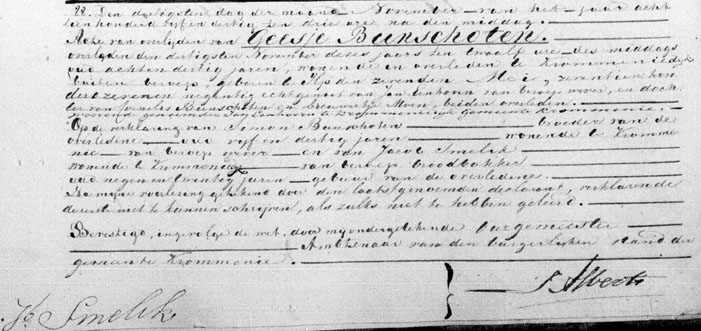 28. Den dertigsten dag der maand November van het jaar acht
tienhonderd vijf en dertig ten drie ure na den middag.
Acte van overlijden van Geesje Bunschoten.
overleden den dertigsten November dezes jaars ten twaalf ure des middags
oud achtendertig jaren, wonende en overleden te Krommeniedijk
buiten beroep, geboren te den zevenden Mei, zeventienhon
derd zevenennegentig echtgenoot van Jan van beroep wever, en doch
ter van Cornelis Bunschoten en Moen, beiden overleden.
wonende genoemden Jan te Krommeniedijk gemeente Krommenie.
Op de verklaring van Simon Bunschoten broeder van de
overledene oud vijf en dertig jaren wonende te Kromme
nie van beroep wever en van Jacob Smelik
wonende te Krommenie van beroep broodbakker
oud negen en twintig jaren gebuur van de overledene.
Na mijne voorlezing getekend door den laatstgenoemden declarant, verklarende
de eerste niet te kunnen schrijven, als zulks niet te hebben geleerd.
Bevestigd, ingevolge de wet, door mij ondergetekende burgemeester
Ambtenaar van den burgerlijken stand der
gemeente Krommenie.
Jb Smelik